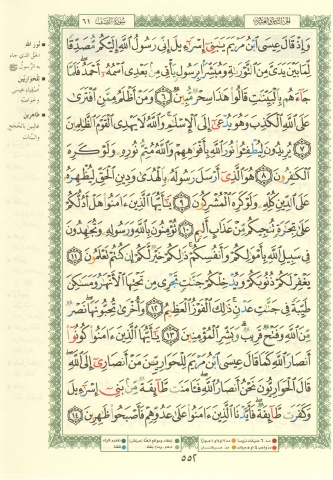 الجزء الثامن والعشرون
سورة الصف ٦١
وَإِذْ قَالَ عِيسَى ابْنُ مَرْيَمَ يَبَنِي إِسْرَءِيلَ إِنِّي رَسُولُ اللَّهِ إِلَيْكُم مُّصَدِّقًا
لِّمَا بَيْنَ يَدَيَّ مِنَ التَّوْرَىٰةِ وَمُبَشِّرًا بِرَسُولٍ يَأْتِي مِنْ بَعْدِي اسْمُهُ أَحْمَدُ فَلَمَّا
جَاءَهُم بِالْبَيِّنَٰتِ قَالُوا هَٰذَا سِحْرٌ مُّبِينٌ ٦ وَمَنْ أَظْلَمُ مِمَّنِ افْتَرَىٰ
عَلَى اللَّهِ الْكَذِبَ وَهُوَ يُدْعَىٰ إِلَى الْإِسْلَٰمِ وَاللَّهُ لَا يَهْدِي الْقَوْمَ الظَّٰلِمِينَ
٧ يُرِيدُونَ لِيُطْفِـُٔوا نُورَ اللَّهِ بِأَفْوَٰهِهِمْ وَاللَّهُ مُتِمُّ نُورِهِ وَلَوْ كَرِهَ
الْكَٰفِرُونَ ٨ هُوَ الَّذِي أَرْسَلَ رَسُولَهُ بِالْهُدَىٰ وَدِينِ الْحَقِّ لِيُظْهِرَهُ
عَلَى الدِّينِ كُلِّهِ وَلَوْ كَرِهَ الْمُشْرِكُونَ ٩ يَٰأَيُّهَا الَّذِينَ ءَامَنُوا هَلْ أَدُلُّكُمْ
عَلَىٰ تِجَٰرَةٍ تُنجِيكُم مِّنْ عَذَابٍ أَلِيمٍ ١٠ تُؤْمِنُونَ بِاللَّهِ وَرَسُولِهِ وَتُجَٰهِدُونَ
فِي سَبِيلِ اللَّهِ بِأَمْوَٰلِكُمْ وَأَنفُسِكُمْ ذَٰلِكُمْ خَيْرٌ لَّكُمْ إِن كُنتُمْ تَعْلَمُونَ ١١
يَغْفِرْ لَكُمْ ذُنُوبَكُمْ وَيُدْخِلْكُمْ جَنَّٰتٍ تَجْرِي مِن تَحْتِهَا الْأَنْهَٰرُ وَمَسَٰكِنَ
طَيِّبَةً فِي جَنَّٰتِ عَدْنٍ ذَٰلِكَ الْفَوْزُ الْعَظِيمُ ١٢ وَأُخْرَىٰ تُحِبُّونَهَا نَصْرٌ
مِّنَ اللَّهِ وَفَتْحٌ قَرِيبٌ وَبَشِّرِ الْمُؤْمِنِينَ ١٣ يَٰأَيُّهَا الَّذِينَ ءَامَنُوا كُونُوا
أَنصَارَ اللَّهِ كَمَا قَالَ عِيسَى ابْنُ مَرْيَمَ لِلْحَوَارِيِّنَ مَنْ أَنصَارِي إِلَى اللَّهِ
قَالَ الْحَوَارِيُّونَ نَحْنُ أَنصَارُ اللَّهِ فَـَٔامَنَت طَّائِفَةٌ مِّن بَنِي إِسْرَءِيلَ
وَكَفَرَت طَّائِفَةٌ فَأَيَّدْنَا الَّذِينَ ءَامَنُوا عَلَىٰ عَدُوِّهِمْ فَأَصْبَحُوا ظَٰهِرِينَ ١٤
نور الله
الحق الذي جاء
به الرسول ﷺ
للحواريين
أصفياء عيسى
وخواصه
ظاهرين
غالبين بالحجج
والبينات
٥٥٢